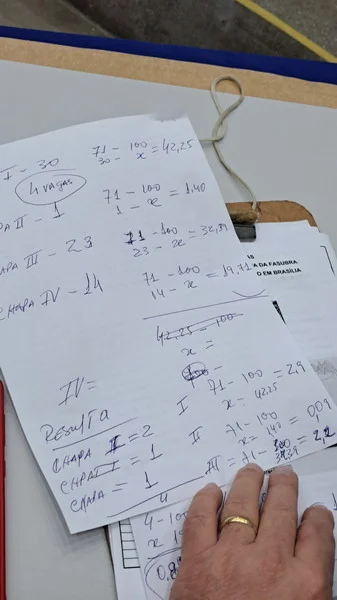 I - 30
71 - 100
30 - x = 42,25
4 VAGAS
71 - 100
1 - x = 1.40
CHAPA II - 1
71 - 100
23 - x = 32,39
CHAPA III - 23
71 - 100
14 - x = 19,71
CHAPA IV - 14
AS
A DA FASUBRA
O EM BRASÍLIA
42,25 - 100
x =
IV =
I
71 - 100
x = 42,25
= 2,9
RESULTA
CHAPA I = 2
II
71 - 100
x = 1,40
= 0,09
CHAPA = 1
III = 71 - 100
32,39
= 2,2
CHAPA = 1
4
4 - 100